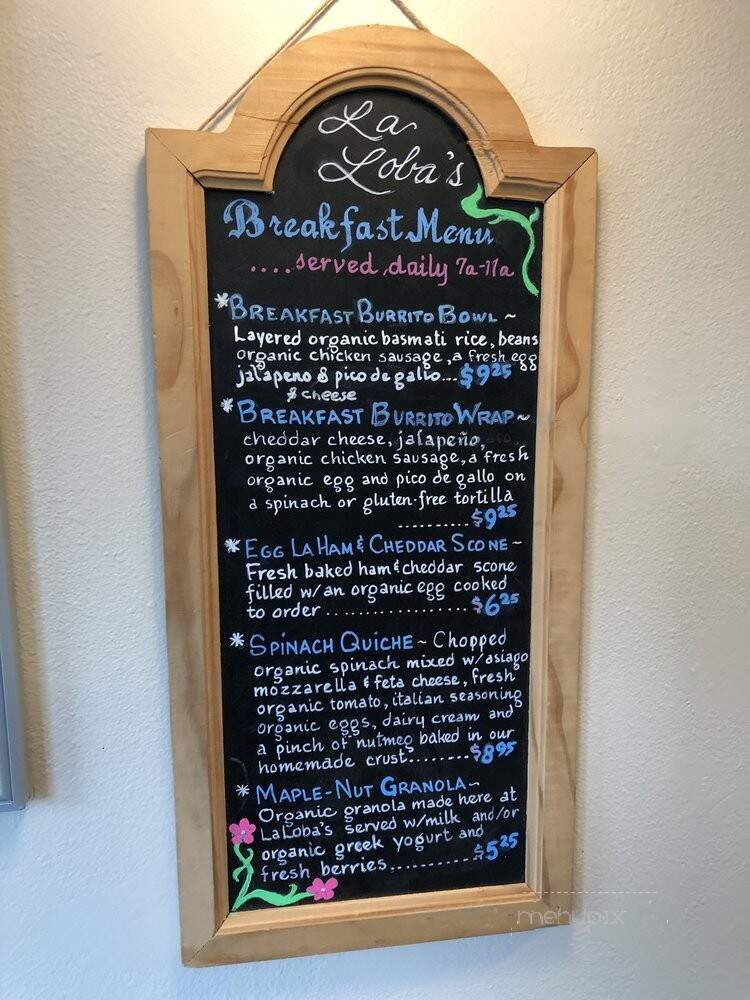 La
Loba's
Breakfast Menu
....served daily 7a-11a
*BREAKFAST BURRITO BOWL ~
Layered organic basmati rice, beans
organic chicken sausage, a fresh egg
jalapeno & pico de gallo...$9.25
& cheese
*BREAKFAST BURRITO WRAP~
cheddar cheese, jalapeño,
organic chicken sausage, a fresh
organic egg and pico de gallo on
a spinach or gluten-free tortilla
.........$9.25
*EGG LA HAM & CHEDDAR SCONE~
Fresh baked ham & cheddar scone
filled w/an organic egg cooked
to order..................$6.25
*SPINACH QUICHE ~ Chopped
organic spinach mixed w/asiago
mozzarella & feta cheese, fresh
organic tomato, italian seasoning
organic eggs, dairy cream and
a pinch of nutmeg baked in our
homemade crust........$8.95
*MAPLE-NUT GRANOLA~
Organic granola made here at
LaLoba's served w/milk and/or
organic greek yogurt and
fresh berries............$5.25
menupix